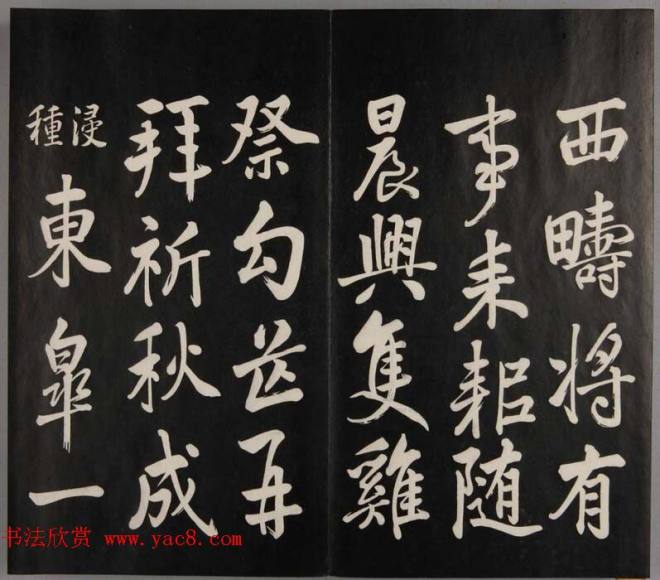 西疇将有
事耒耜随
晨興隻雞
祭勾芒再
拜祈秋成
浸種東皐一
书法欣赏 www.yac8.com